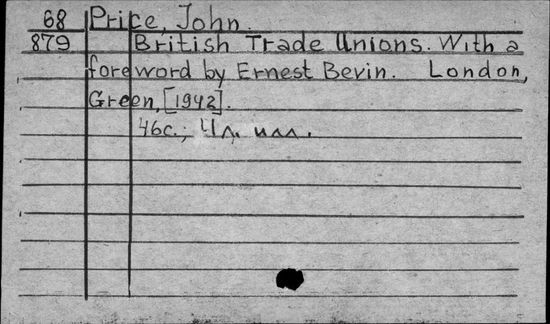 68 Price, John.
879 British Trade Unions. With a
foreword by Ernest Bevin. London,
Green, [1942].
46с.; 4 л. илл.